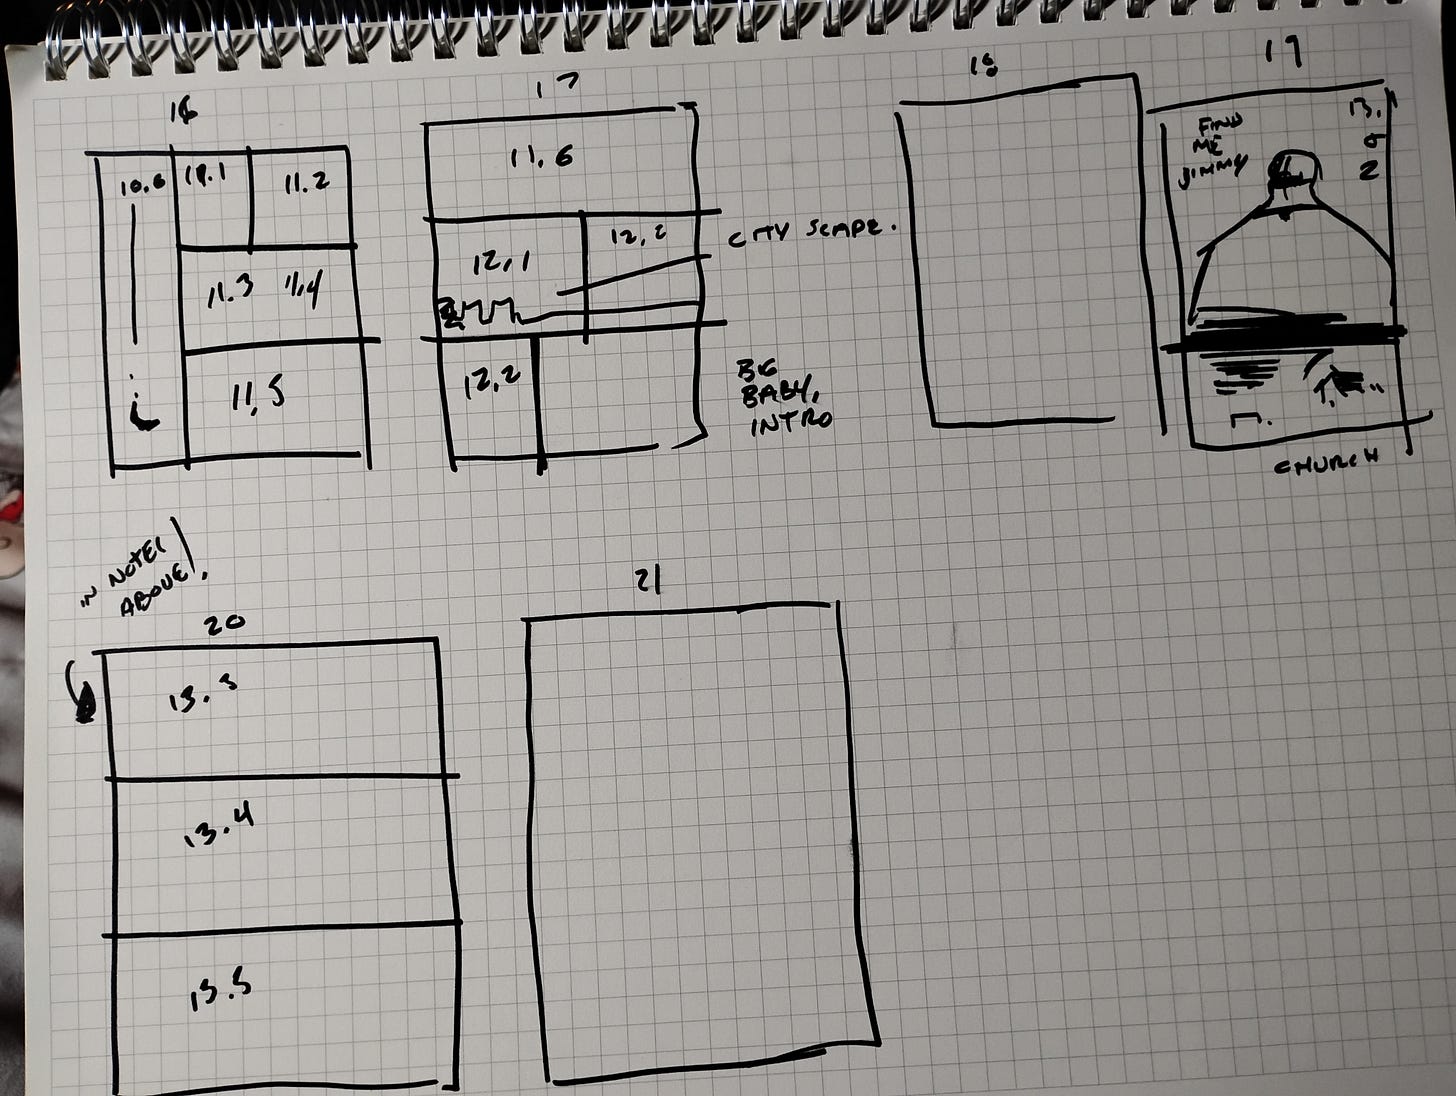 16
10.6
11.1
11.2
11.3 11.4
11.5
17
11.6
12.1
12.2
CITY SCAPE.
12.2
BIG
BABY,
INTRO
18
19
FIND
ME
JIMMY
13.
2
CHURCH
IN NOTES
ABOVE
20
13.3
13.4
13.5
21